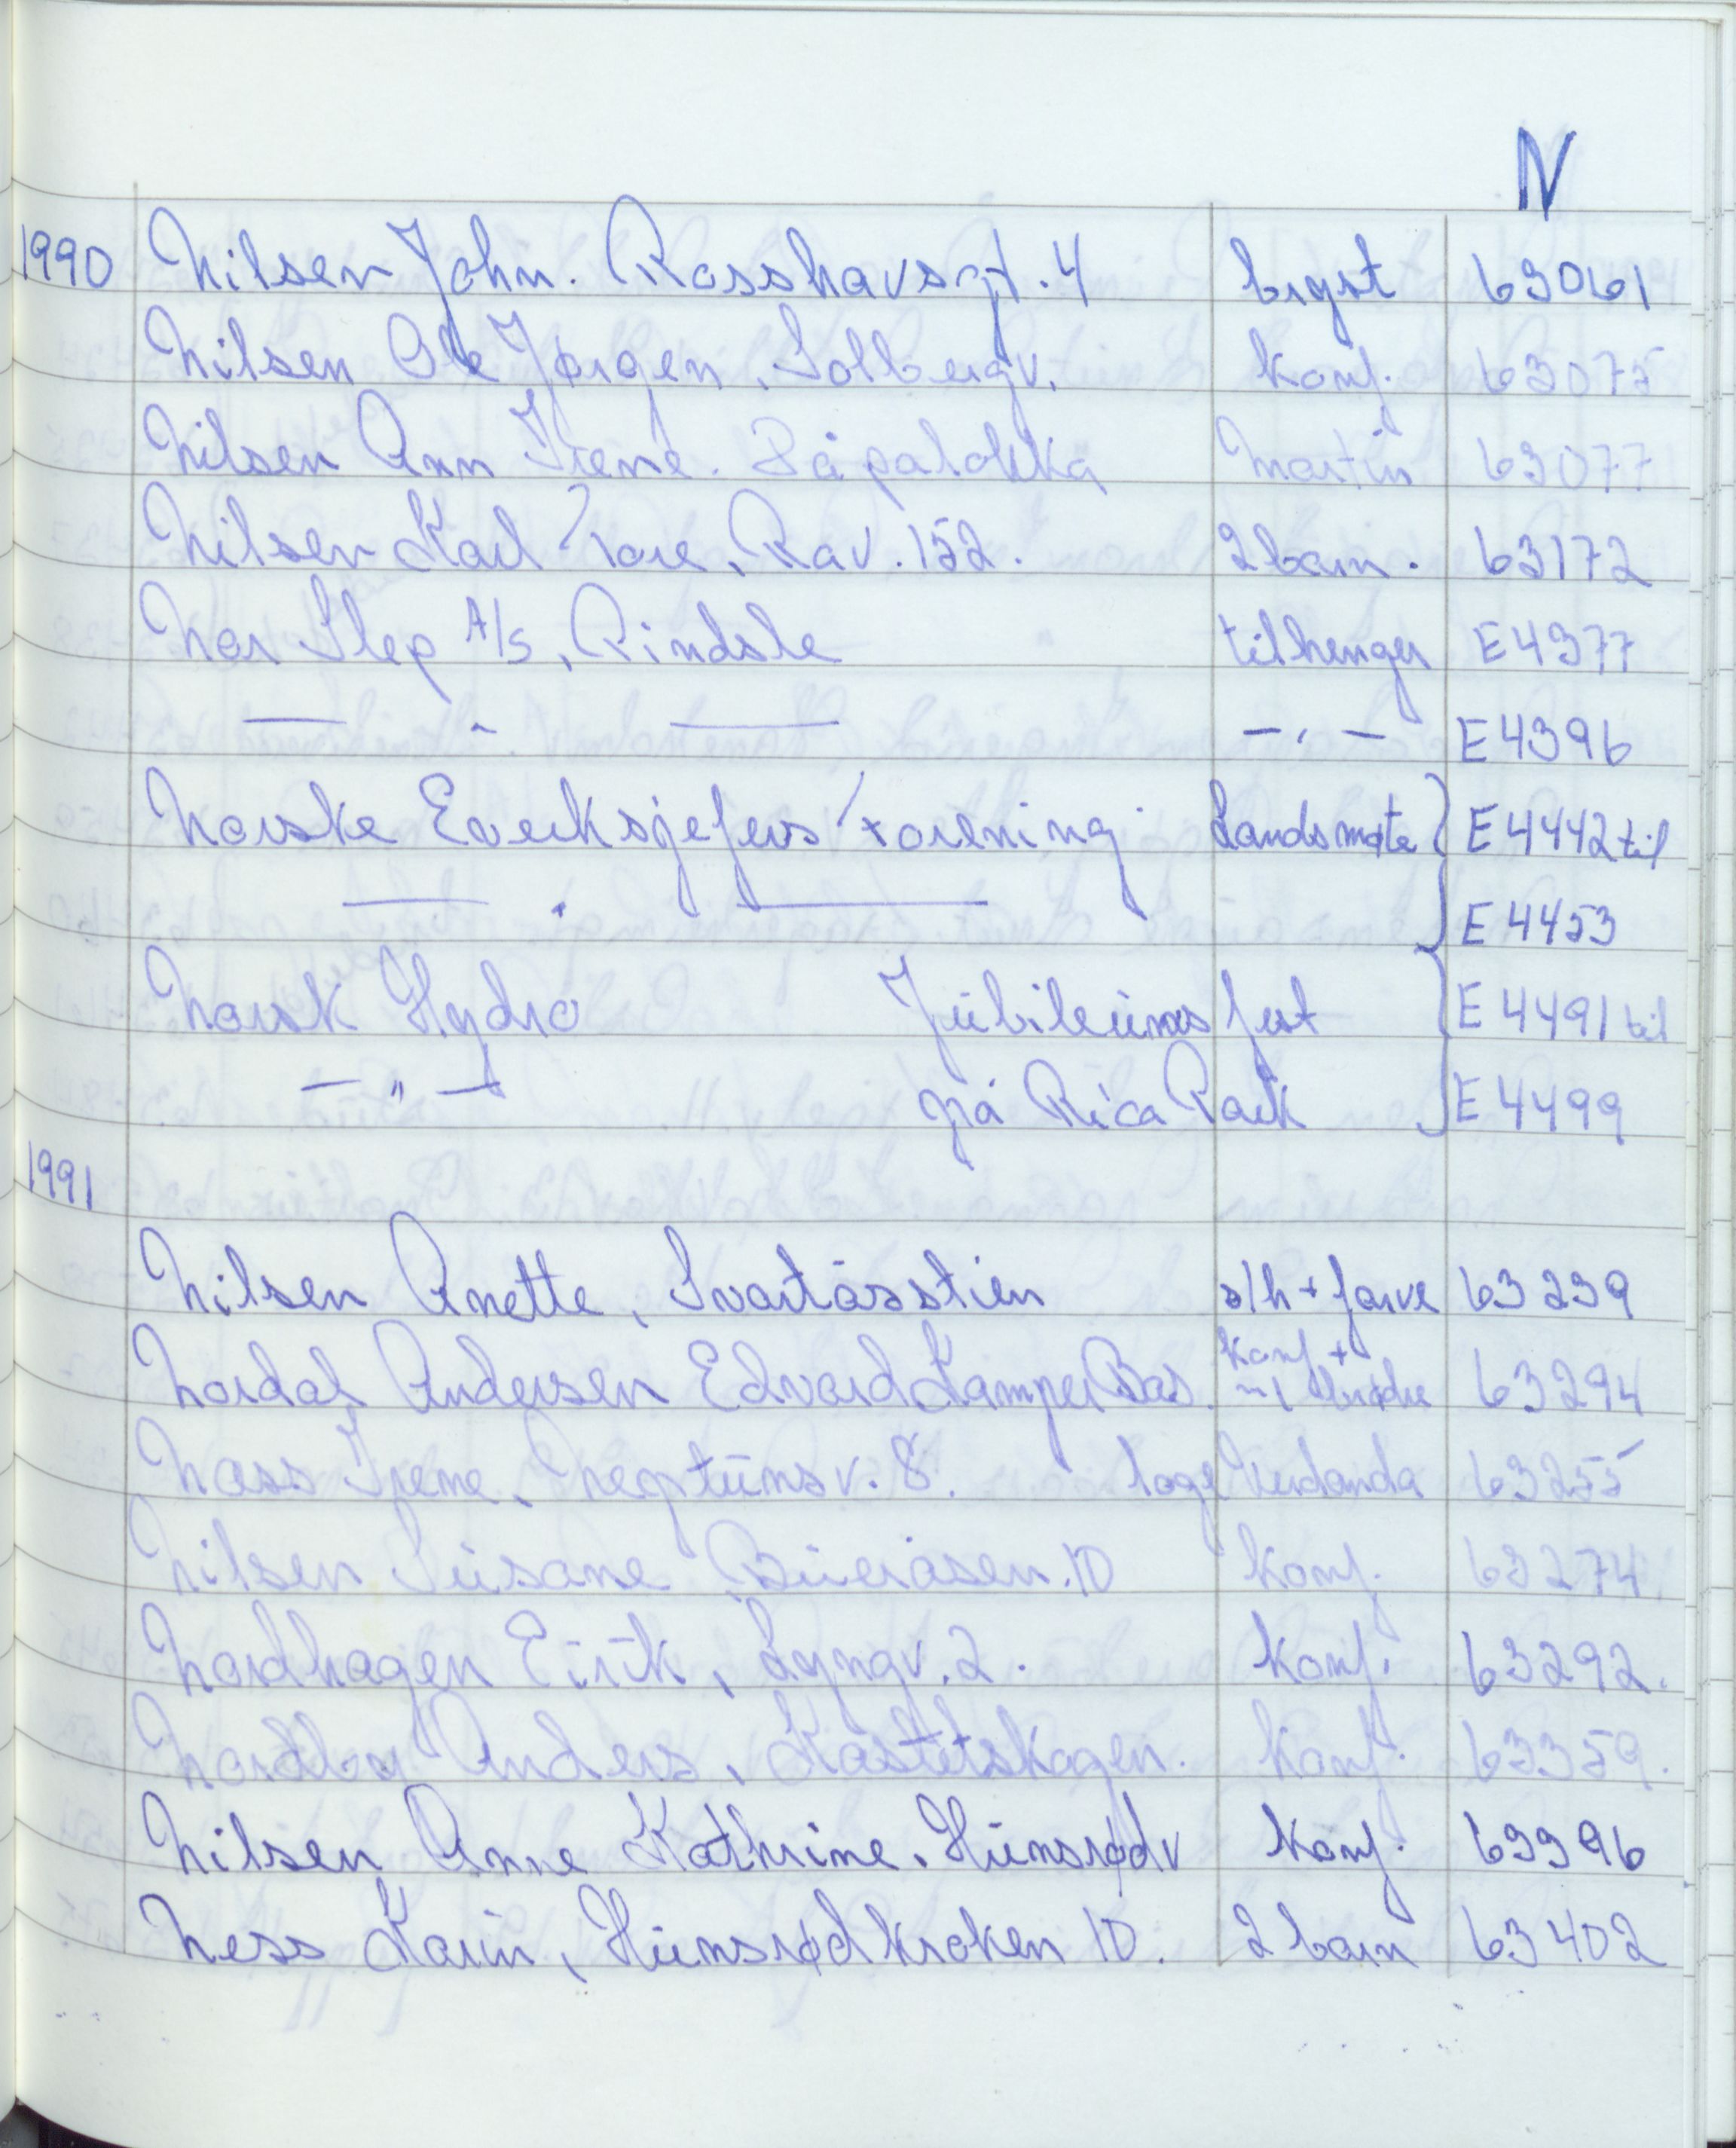 N
1990 Nilsen John. Rosshavsgt. 4 bryst 63061
Nilsen Ole Jørgen, Solbergv. konf. 63075
Nilsen Ann Irene. Båpaløkka Martin 63077
Nilsen Karl Tore, Rav. 152. 2 barn. 63172
Nor Slep A/S, Rindsle tilhenger E 4377
— " — — " — E 4396
Norske Everksjefers Forening Landsmøte E 4442 til
— " — E 4453
Norsk Hydro Jubileums fest E 4491 til
— " — på Rica Park E 4499
1991
Nilsen Anette, Svartåsstien s/h + farve 63239
Nordal Andersen Edvard Kamper Bas. konf + m/ brødre 63294
Næss Irene, Neptunsv. 8. loge Verdanda 63255
Nilsen Susane Bueråsen. 10 konf. 63274
Nordhagen Eirik, Lyngv. 2. konf. 63292.
Nordby Anders, Kastetskogen. konf. 63359.
Nilsen Anne Kathrine. Hunsrødv konf. 63396
Ness Karin, Hunsrødkroken 10. 2 barn 63402